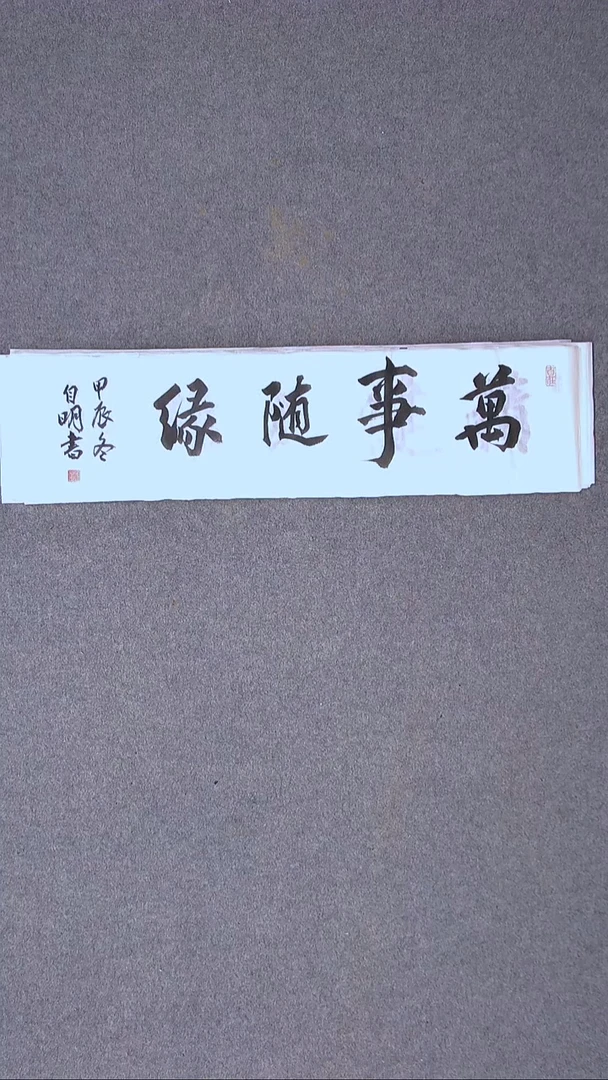 萬事随緣
甲辰冬
自明書